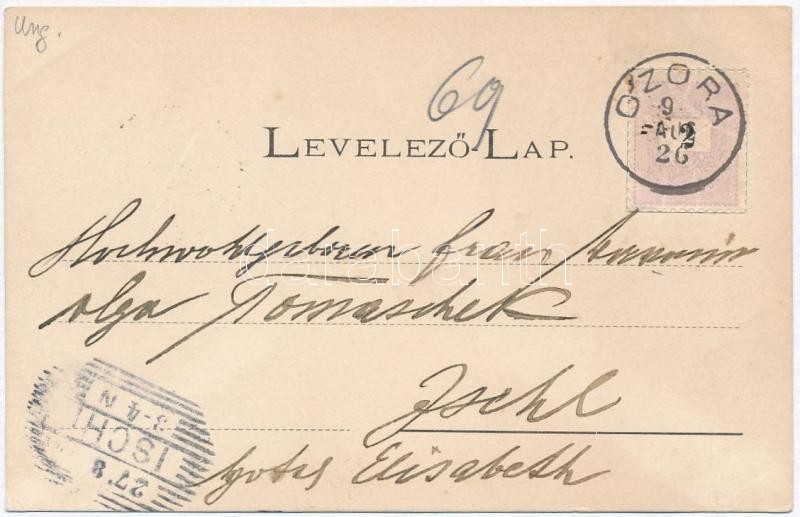 Ung.
69
OZORA
9
AUG
26
2
LEVELEZŐ-LAP.
Hochwohlgeboren frau
Olga Tomaschek
Ischl
Hotel Elisabeth
ISCHL
3-4 N
27 8
darabanth